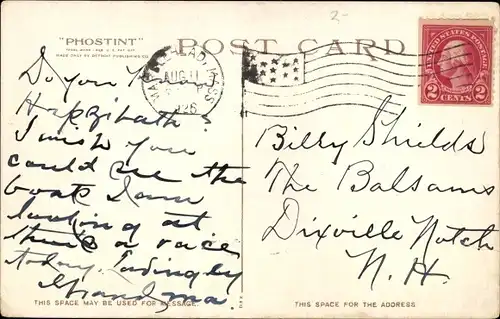 "PHOSTINT"
MADE ONLY BY DETROIT PUBLISHING CO.
POST CARD
2-
MARBLEHEAD, MASS.
AUG 11
1926
UNITED STATES POSTAGE
2 CENTS 2
Do you
I wish you
could see the
boats I am
looking at
there's a race
today. Lovingly
Grandma
Billy Shields
The Balsams
Dixville Notch
N.H.
THIS SPACE MAY BE USED FOR MESSAGE.
THIS SPACE FOR THE ADDRESS